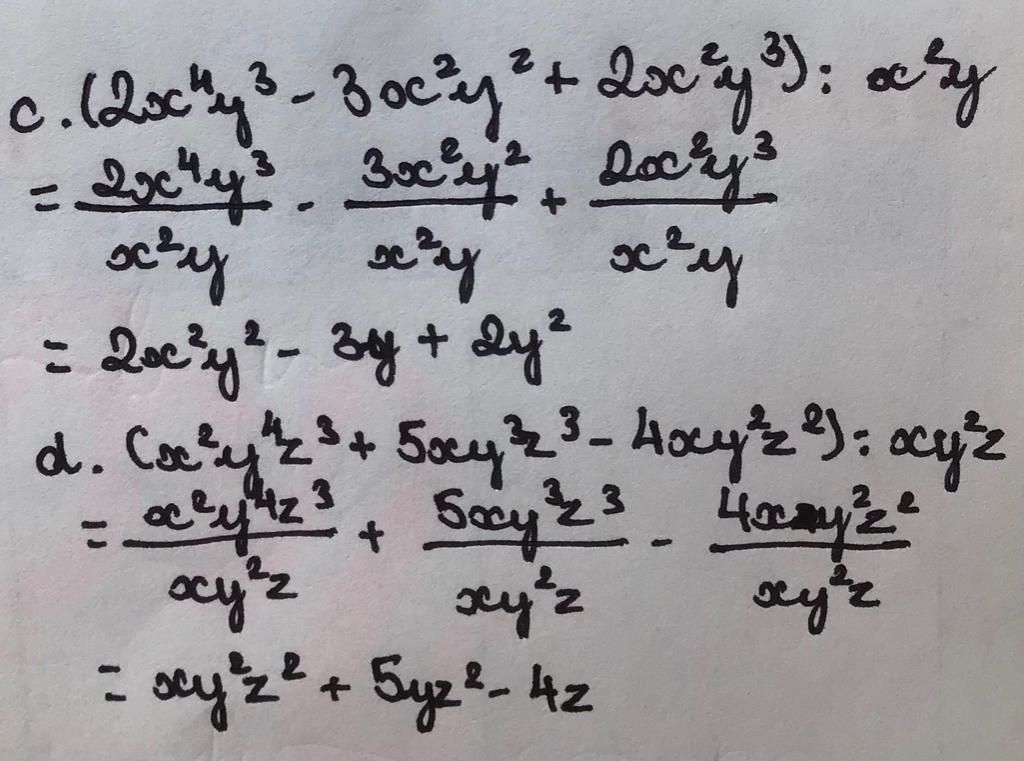 c. (2x⁴y³ - 3x²y² + 2x²y³) : x²y
= 2x⁴y³/x²y - 3x²y²/x²y + 2x²y³/x²y
= 2x²y² - 3y + 2y²
d. (x²y⁴z³ + 5xy³z³ - 4xy²z²) : xy²z
= x²y⁴z³/xy²z + 5xy³z³/xy²z - 4xy²z²/xy²z
= xy²z² + 5yz² - 4z